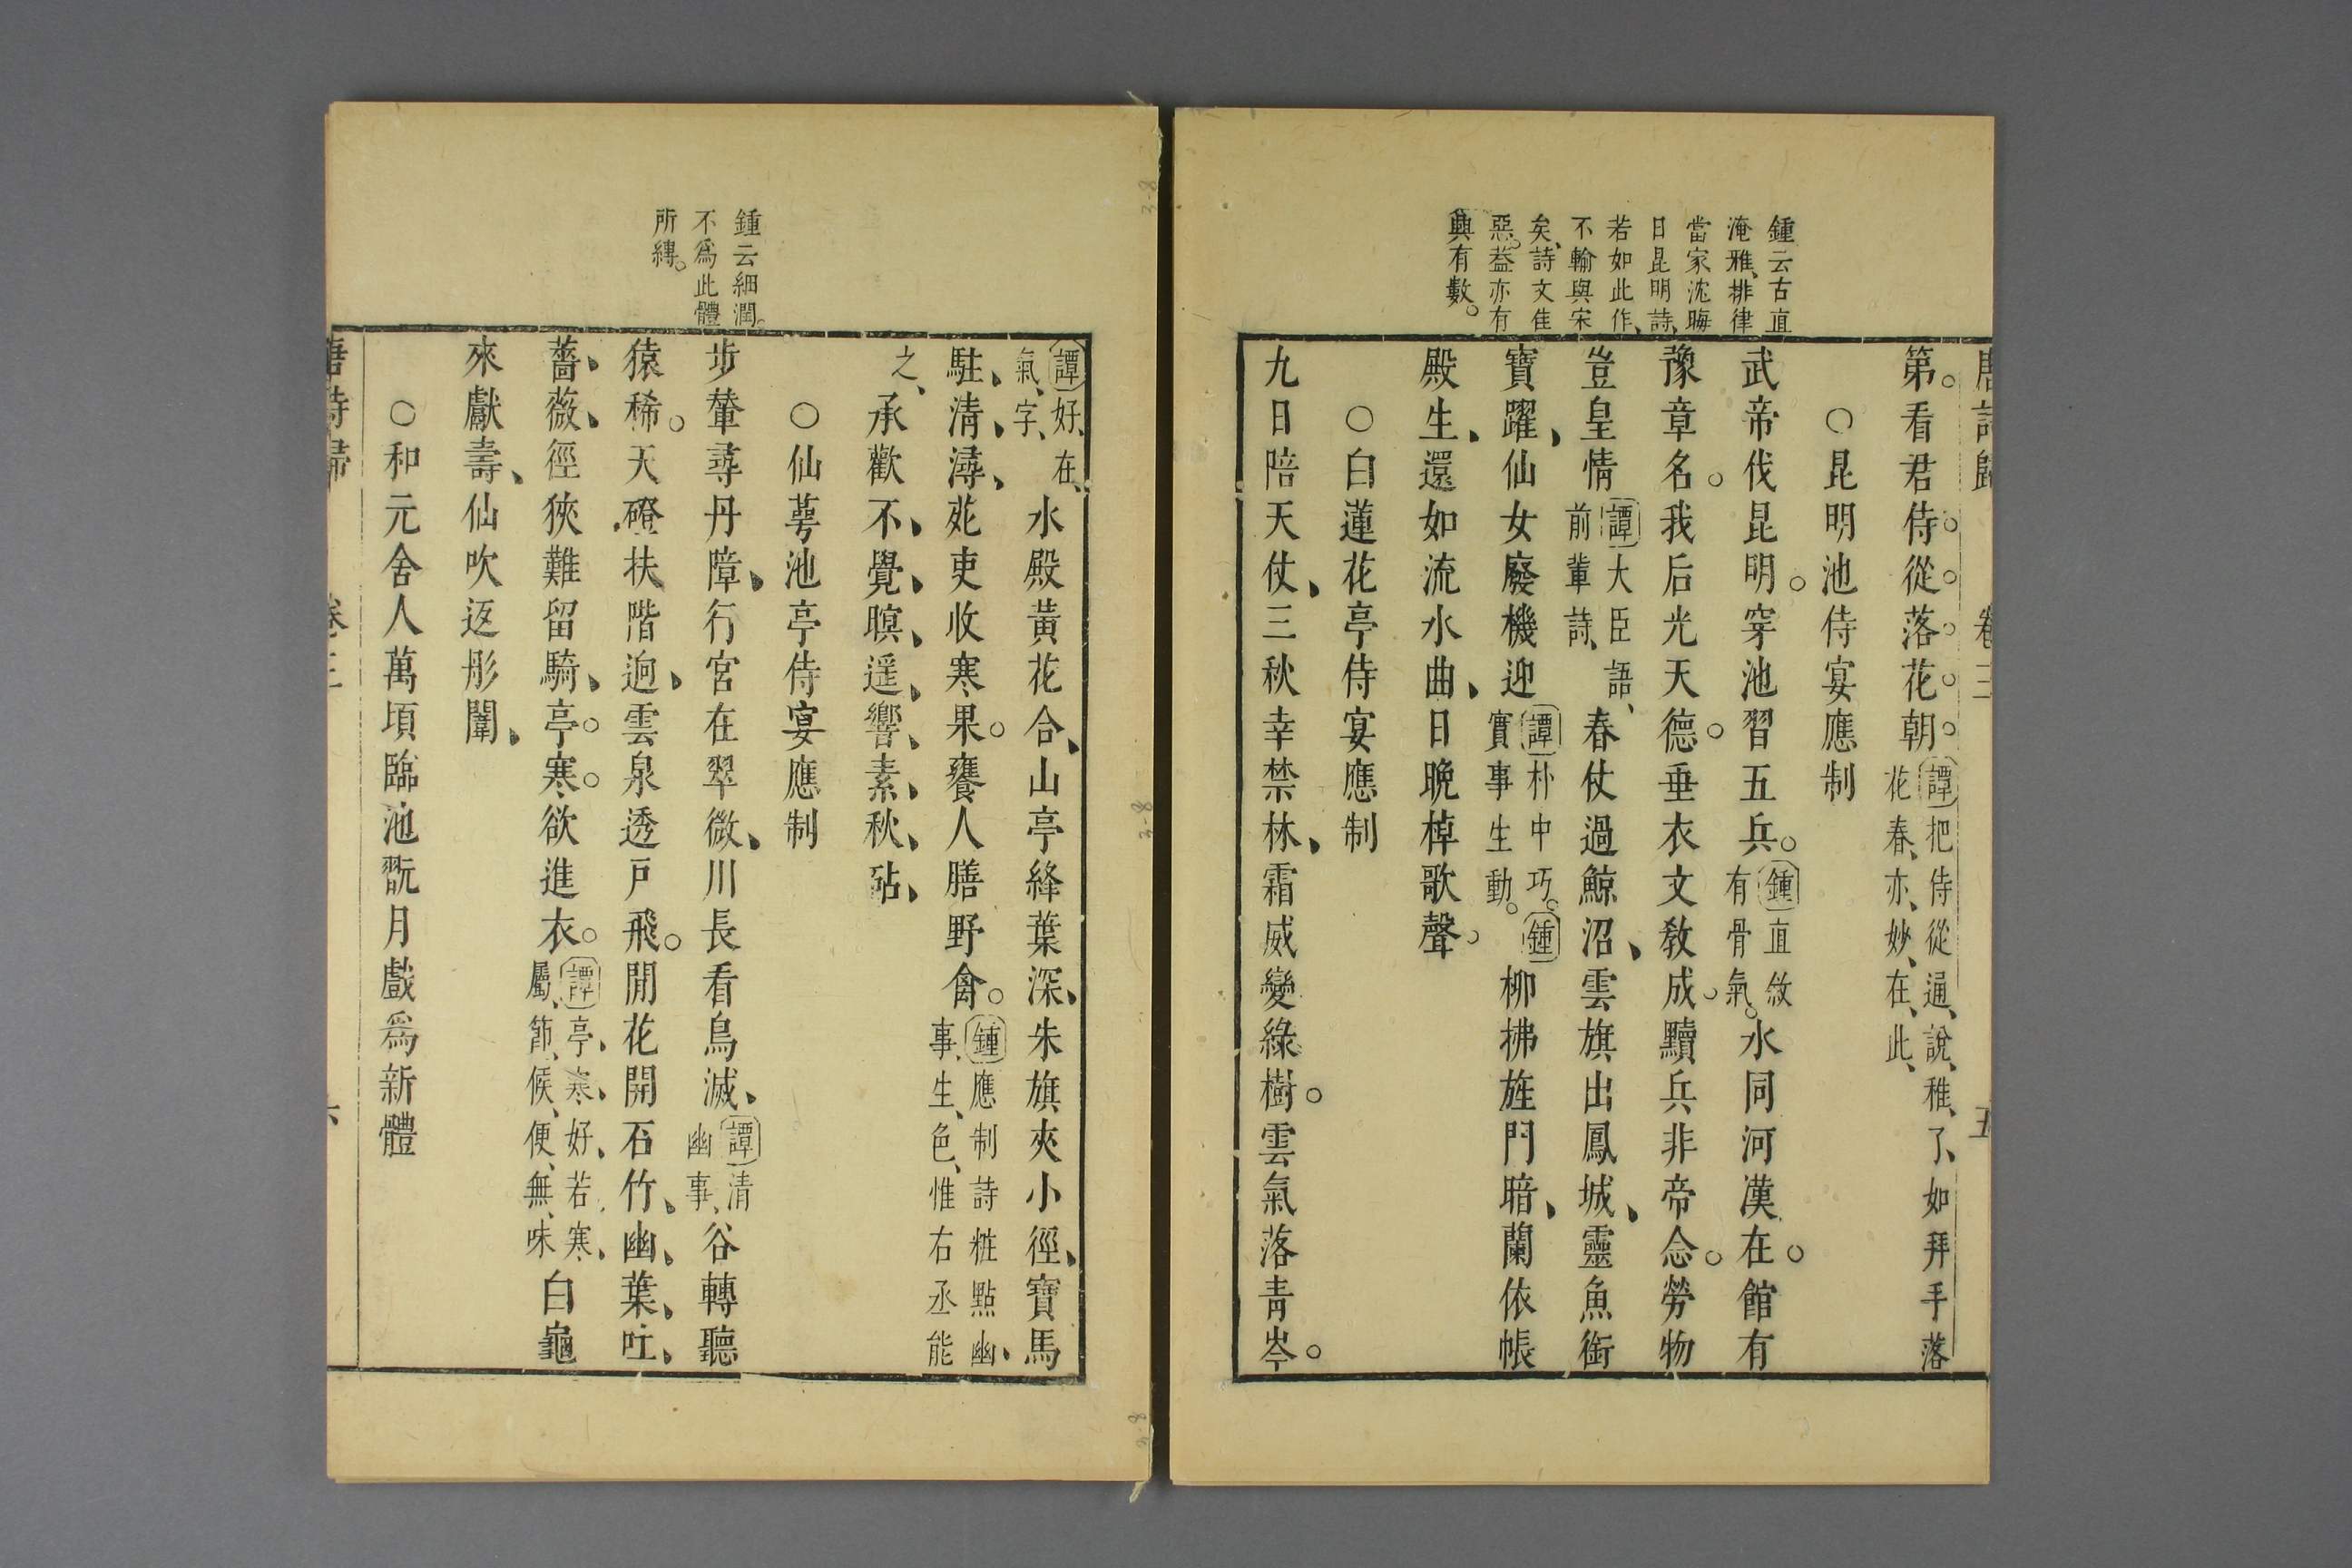 唐詩歸 卷三 五
鍾云古直
淹雅、排律
當家沈晦
日昆明詩、
若如此作、
不輸與宋
矣、詩文佳
惡。葢亦有
興有數。
第。看君侍。從。落。花。朝。譚把侍從通、說、稚、了、如拜手落
花春、亦、妙、在、此、
○昆明池侍宴應制
武帝伐昆明。穿池習五兵。鍾直敘
有骨氣。水同河漢在。館有
豫章名。我后光天德。垂衣文敎成。黷兵非帝念。勞物
豈皇情譚大臣語、
前輩詩、春仗過鯨沼、雲旗出鳳城、靈魚銜
寶躍、仙女廢機迎譚朴中巧。鍾
實事生動。柳拂旌門暗、蘭依帳
殿生、還如流水曲、日晩棹歌聲。
○白蓮花亭侍宴應制
九日陪天仗、三秋幸禁林、霜威變綠樹。雲氣落靑岑。
鍾云細潤。
不爲此體
所縛。
譚好、在、
氣、字、水殿黃花合、山亭絳葉深、朱旗夾小徑、寶馬
駐、淸、潯、苑吏收寒果。饔人膳野禽。鍾應制詩粧點幽、
事、生、色、惟右丞能
之、承歡不、覺、暝、遥、響、素、秋、砧、
○仙萼池亭侍宴應制
步輦尋丹障、行宮在翠微、川長看鳥滅、譚清
幽事、谷轉聽
猿稀。天磴扶階逈、雲泉透戸飛。閒花開石竹、幽、葉、吐、
薔、薇、徑狹難留騎、亭。寒。欲進衣。譚亭、寒、好、若、寒、
屬、節、候、便、無、味白龜
來獻壽、仙吹返彤闈、
○和元舍人萬頃臨池翫月戲爲新體
唐詩歸 卷三 六